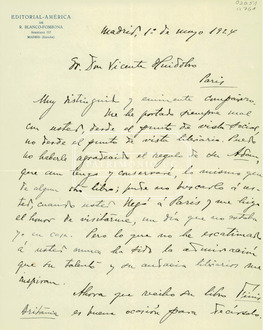 EDITORIAL-AMÉRICA
DE
R. BLANCO-FOMBONA
MADRID (España)
Madrid, 1º de mayo 1924
Sr. Don Vicente Huidobro
Paris
Muy distinguido y eminente compañero:
Me he portado siempre mal
con usted, desde el punto de vista social,
no desde el punto de vista literario. Puedo
no haberle agradecido el regalo de su Adán,
que aun tengo y conservaré, lo mismo que
de algun otro libro; pude no buscarlo á us-
ted, cuando usted llegó á Paris y me hizo
el honor de visitarme, un día que no estaba
yo en casa. Pero lo que no he escatimado
á usted nunca ha sido la admiración
que su talento y su audacia literarios me
inspiran.
Ahora que recibo su libro Finis
Britannia es buena ocasión para decírselo.